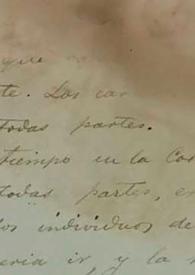 que
te. Los car
todas partes.
tiempo en la Cos
todas partes, e
los individuos de
eria ir, y la